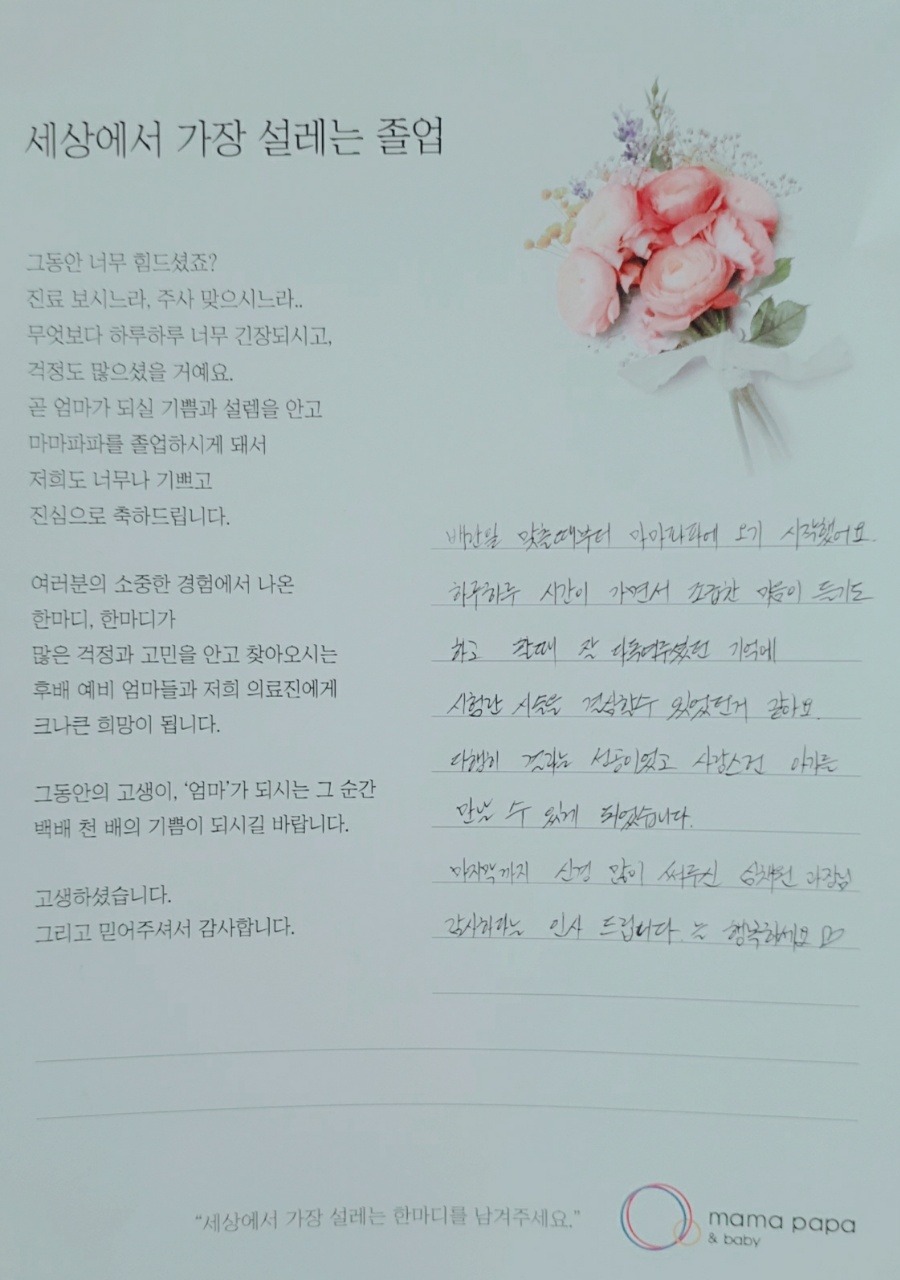 세상에서 가장 설레는 졸업
그동안 너무 힘드셨죠?
진료 보시느라, 주사 맞으시느라..
무엇보다 하루하루 너무 긴장되시고,
걱정도 많으셨을 거예요.
곧 엄마가 되실 기쁨과 설렘을 안고
마마파파를 졸업하시게 돼서
저희도 너무나 기쁘고
진심으로 축하드립니다.
여러분의 소중한 경험에서 나온
한마디, 한마디가
많은 걱정과 고민을 안고 찾아오시는
후배 예비 엄마들과 저희 의료진에게
크나큰 희망이 됩니다.
그동안의 고생이, ‘엄마’가 되시는 그 순간
백배 천 배의 기쁨이 되시길 바랍니다.
고생하셨습니다.
그리고 믿어주셔서 감사합니다.
배란일 맞출때부터 마마파파에 오기 시작했어요.
하루하루 시간이 가면서 조급한 마음이 들기도
하고 할때 잘 다독여주셨던 기억에
시험관 시술을 결심할수 있었던거 같아요.
다행히 결과는 성공이었고 사랑스런 아가를
만날 수 있게 되었습니다.
마지막까지 신경 많이 써주신 과장님
감사하다는 인사 드립니다. 행복하세요 ♡
“세상에서 가장 설레는 한마디를 남겨주세요.”
mama papa
& baby